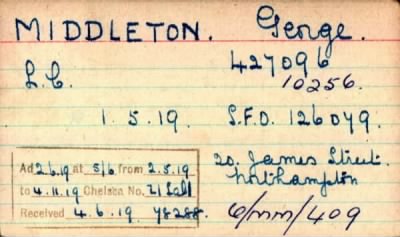 MIDDLETON. George.
427096
L.C. 10256.
1.5.19. S.F.O. 126079.
20. James Street.
Northampton
Ad 2.6.19 at 5/6 from 2.5.19
to 4.11.19 Chelsea No.
Received 4.6.19
6/MM/409